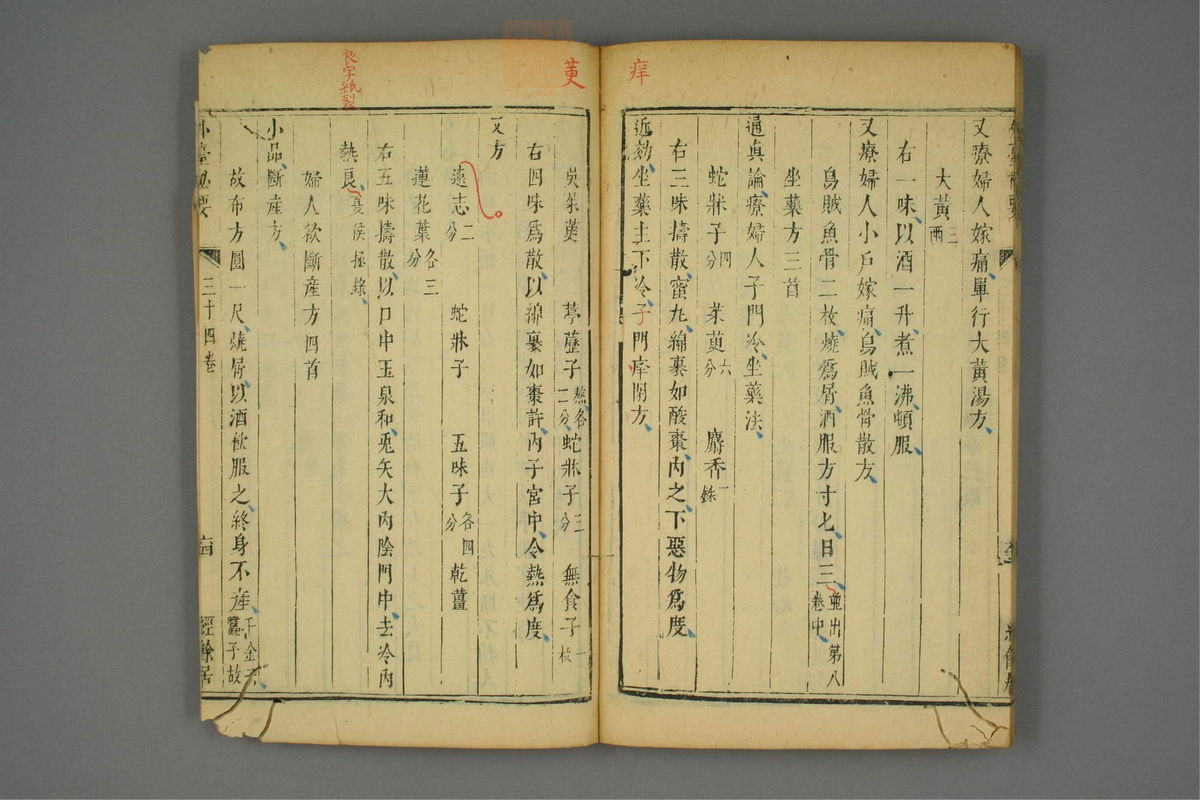 痒
又療婦人嫁痛單行大黃湯方
大黃三兩
右一味以酒一升煮一沸頓服
又療婦人小戶嫁痛烏賊魚骨散方
烏賊魚骨二枚燒爲屑酒服方寸七日三並出第八卷中
坐藥方三首
通真論療婦人子門冷坐藥法
蛇牀子四分 茱萸六分 麝香一銖
右三味擣散蜜丸綿裹如酸棗內之下惡物爲度
近効坐藥主下冷子門痒閉方
萸
吳茱萸 葶藶子熬各二分 蛇牀子三分 無食子一枚
右四味爲散以綿裹如棗許內子宮中令熱爲度
又方
遠志二分 蛇牀子 五味子各四分 乾薑
蓮花葉各三分
右五味擣散以口中玉泉和兎矢大內陰門中去冷內
熱良夏侯拯錄
良字紙裂
婦人欲斷產方四首
小品斷產方
故布方圓一尺燒屑以酒飲服之終身不產千金云蠶子故
外臺秘要 三十四卷 經餘居